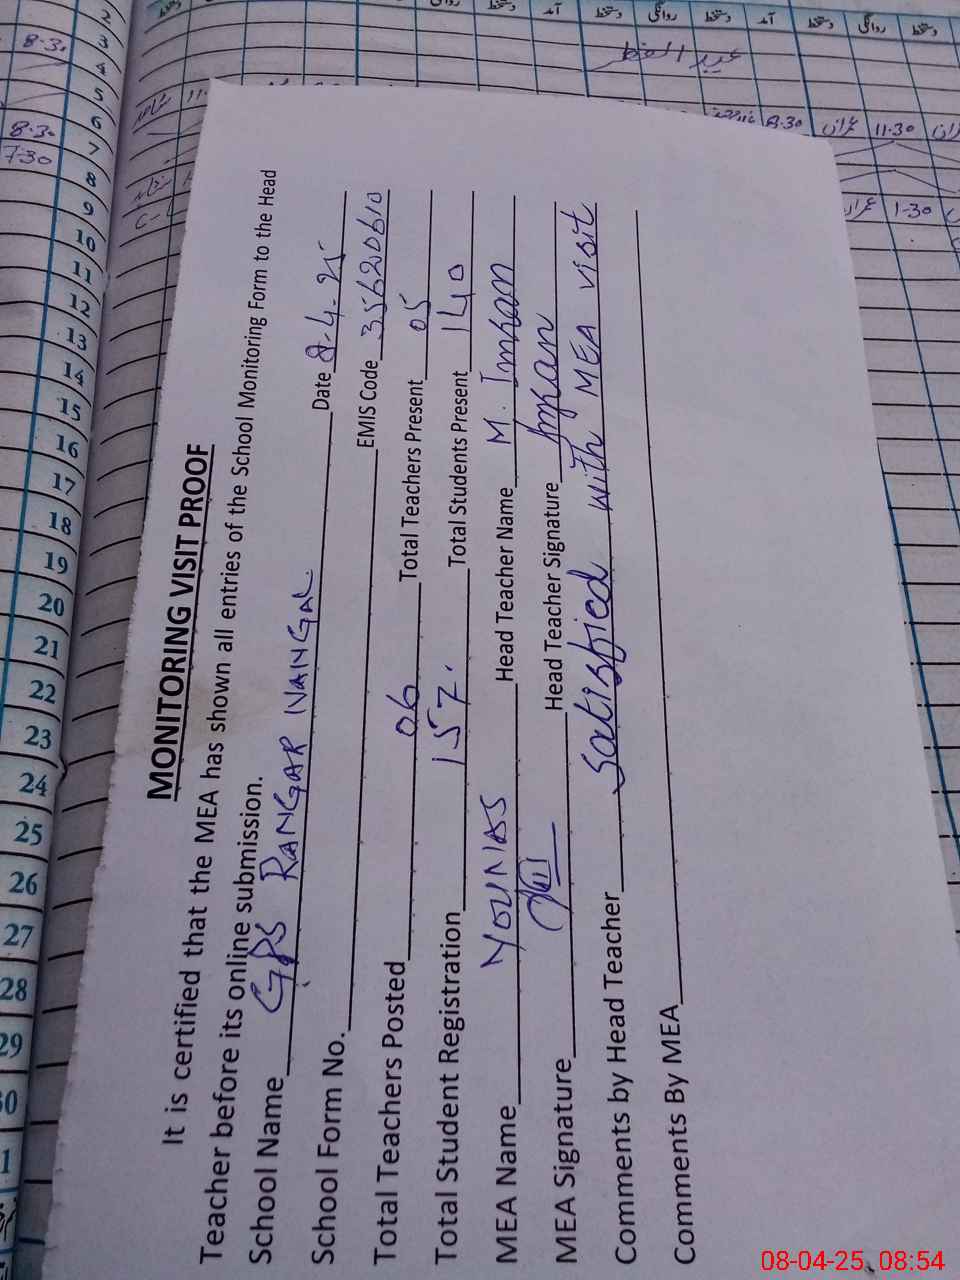 MONITORING VISIT PROOF
It is certified that the MEA has shown all entries of the School Monitoring Form to the Head
Teacher before its online submission.
School Name GPS RANGAR NANGAL Date 8.4.25
School Form No. EMIS Code 35620610
Total Teachers Posted 06 Total Teachers Present 05
Total Student Registration 157. Total Students Present 140
MEA Name YOUNAS Head Teacher Name M. Imran
MEA Signature Head Teacher Signature Imran
Comments by Head Teacher Satisfied with MEA visit
Comments By MEA
آمد دستخط روانگی دستخط آمد دستخط روانگی دستخط
عید الفطر
8.30 عمران 11.30
عمران 1.30
8.30
8.30
7.30
2
3
4
5
6
7
8
9
10
11
12
13
14
15
16
17
18
19
20
21
22
23
24
25
26
27
28
29
08-04-25, 08:54